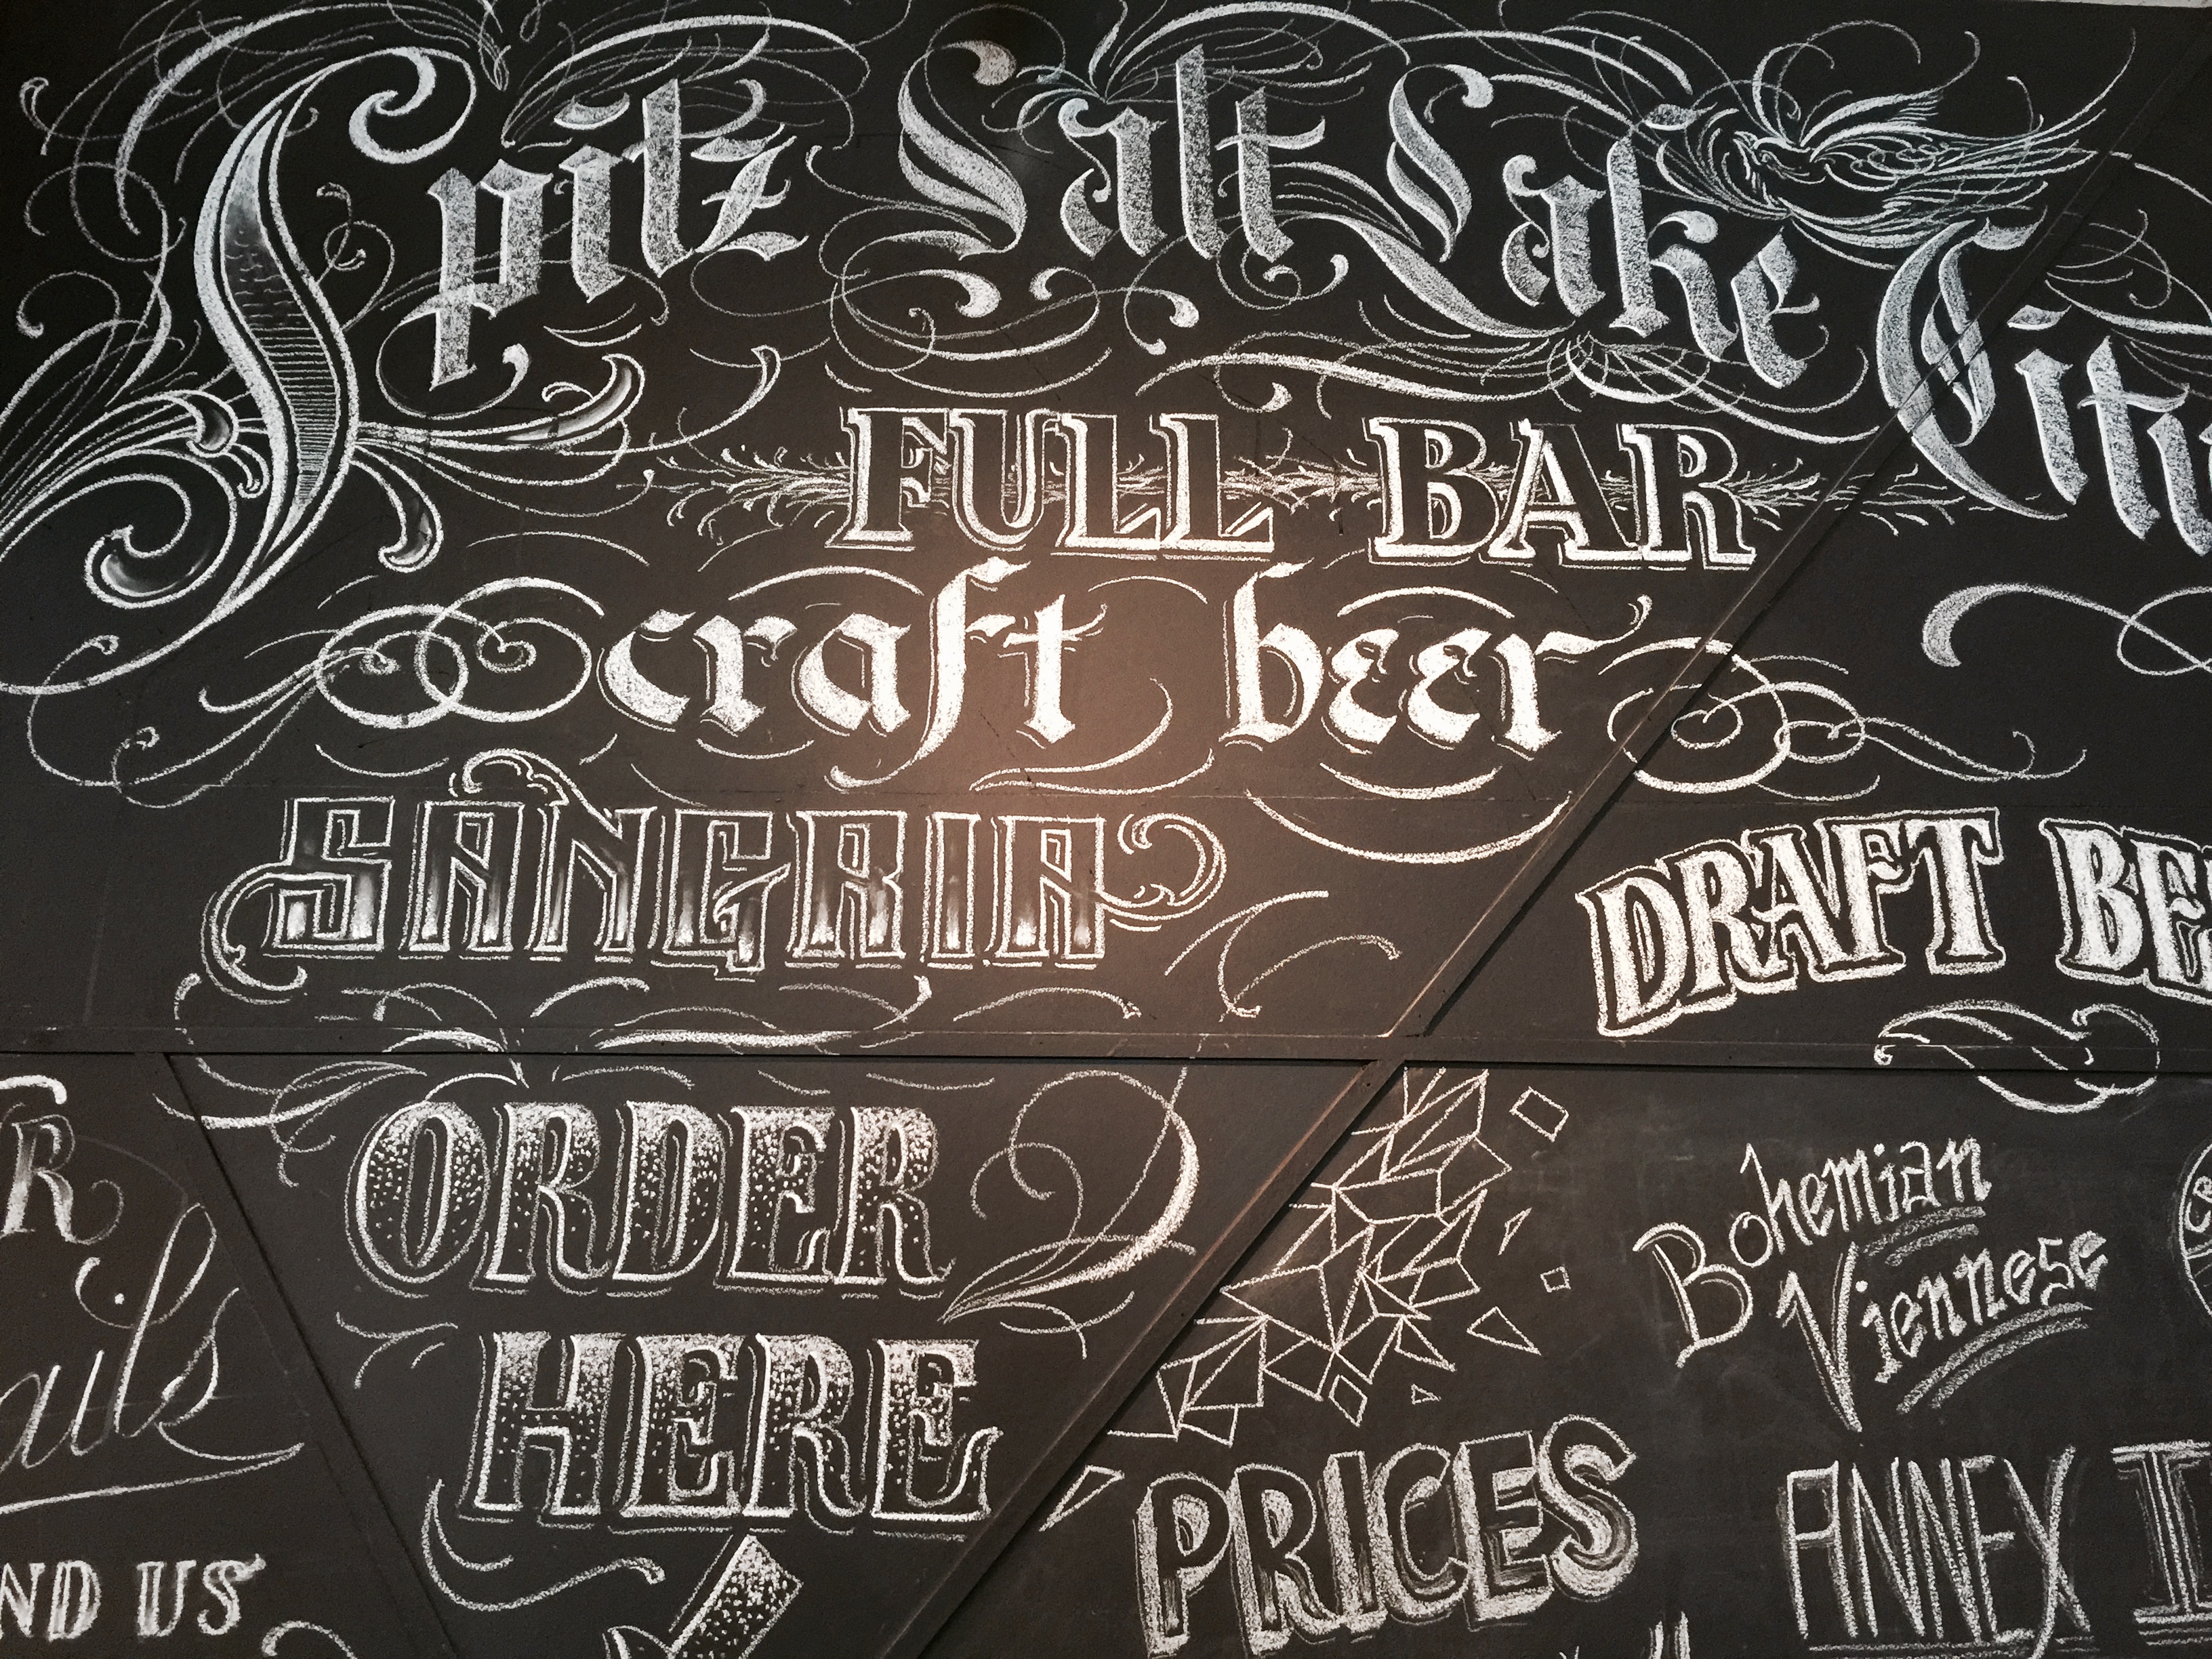 Spitz Salt Lake City
FULL BAR
craft beer
SANGRIA
DRAFT BE
ORDER
HERE
Bohemian
Viennese
PRICES
ANNEX I
R
ails
ND US